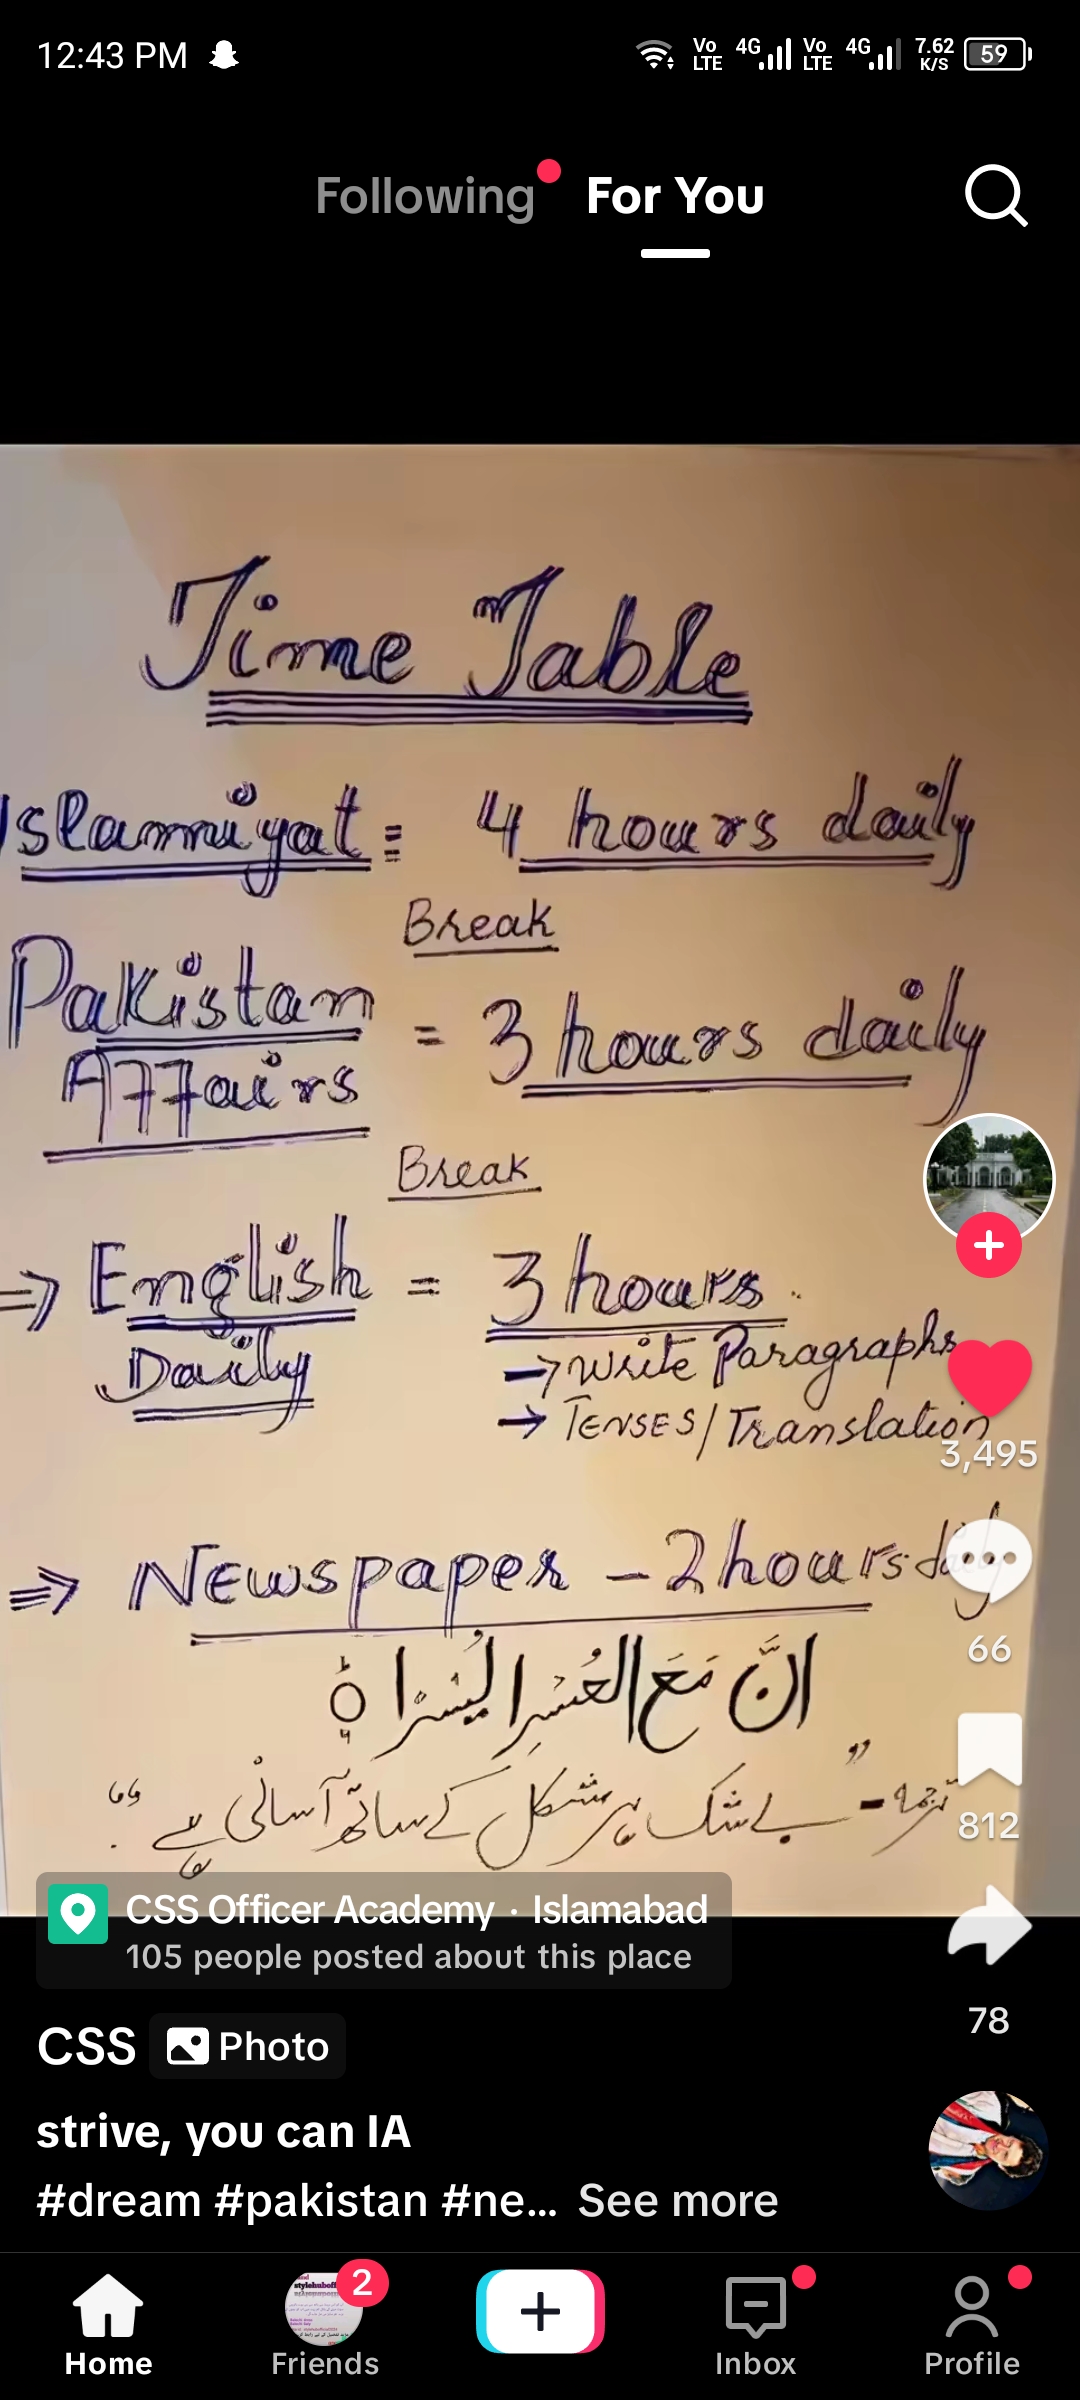 12:43 PM
Vo LTE 4G Vo LTE 4G 7.62 K/S 59
Following For You
Time Table
Islamiyat = 4 hours daily
Break
Pakistan Affairs = 3 hours daily
Break
⇒ English Daily = 3 hours.
→ Write Paragraphs
→ TENSES/Translation
⇒ Newspaper - 2 hours daily
انَّ مَعَ العُسرِ ا ليُسْرًا
ترجمہ - ”بےشک ہر مشکل کے ساتھ آسانی ہے“.
3,495
66
812
78
CSS Officer Academy · Islamabad
105 people posted about this place
CSS Photo
strive, you can IA
#dream #pakistan #ne... See more
2
Home Friends Inbox Profile